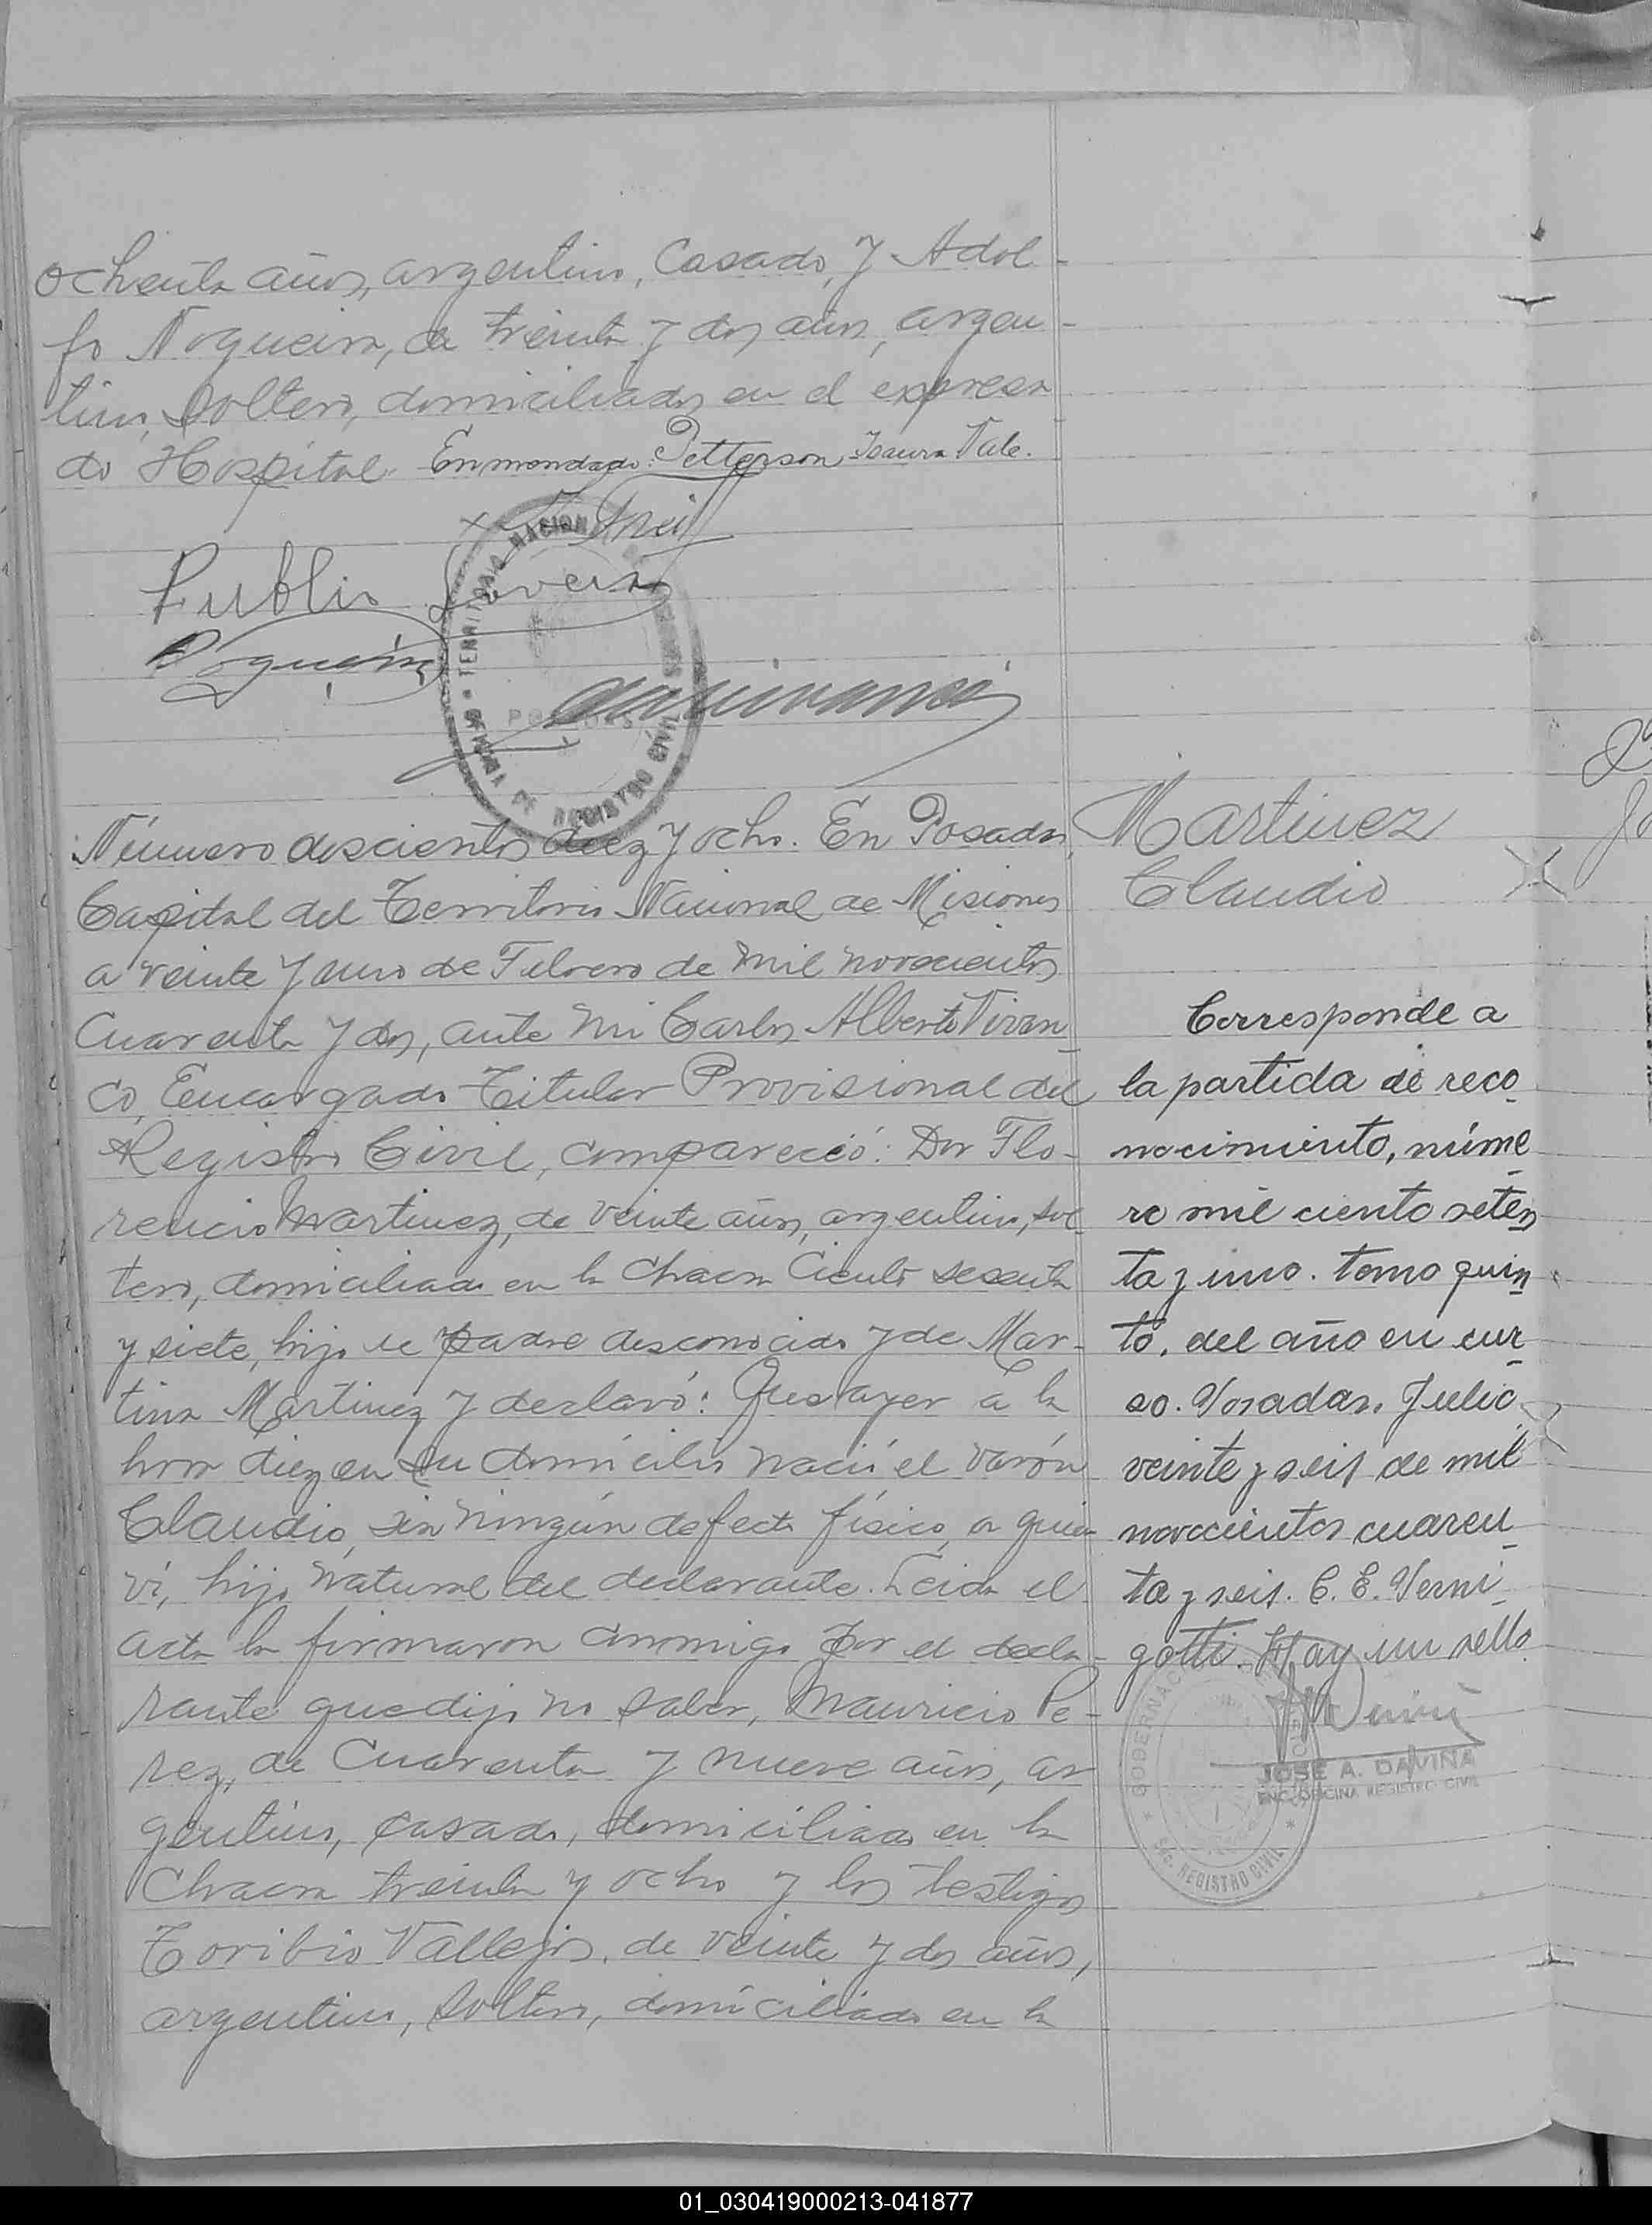 ochenta años, argentino, Casado, y Adol-
fo Nogueira, de treinta y dos años, argen-
tino, Soltero, domiciliados en el expresa
do Hospital. Enmendado: Petterson Isaura Vale.
Publio
Nogueira
TERRITORIO NACIONAL
POSADAS
DE REGISTRO CIVIL
Número doscientos diez y ocho. En Posadas,
Capital del Territorio Nacional de Misiones
a veinte y uno de Febrero de mil novecientos
Cuarenta y dos, ante mi Carlos Alberto Vivan-
co, Encargado Titular Provisional del
Registro Civil, compareció: Don Flo-
rencio Martinez, de veinte años, argentino, sol
tero, domiciliado en la Chacra Ciento sesenta
y siete, hijo de padre desconocido y de Mar-
tina Martinez y declaró: Que ayer a la
hora diez en su domicilio nació el varón
Claudio, sin ningún defecto físico, a quien
ví, hijo natural del declarante. Leida el
acta la firmaron conmigo por el decla-
rante que dijo no saber, Mauricio Pe-
rez, de Cuarenta y nueve años, ar
gentino, casado, domiciliado en la
Chacra treinta y ocho y los testigos
Toribio Vallejos, de veinte y dos años,
argentino, soltero, domiciliado en la
Martinez
Claudio
Corresponde a
la partida de reco
nocimiento, núme
ro mil ciento seten
ta y uno. tomo quin
to, del año en cur
so. Posadas, Julio
veinte y seis de mil
novecientos cuaren
ta y seis. C. E. Verni
gotti. Hay un sello
JOSE A. DAVIÑA
ENC. OFICINA REGISTRO CIVIL
REGISTRO CIVIL
01_030419000213-041877